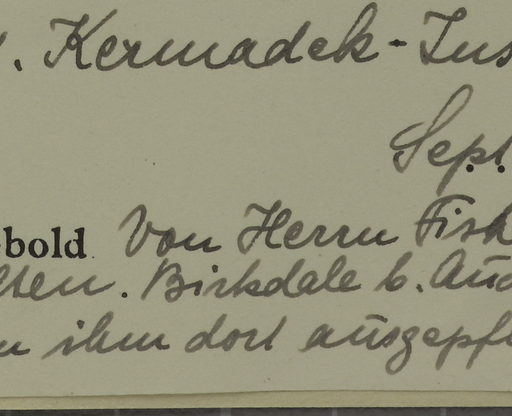 . Kermadek-Ins
Sept.
ebold Von Herrn Fish
lsen. Birkdale b. Auc
n ihm dort ausgepfl